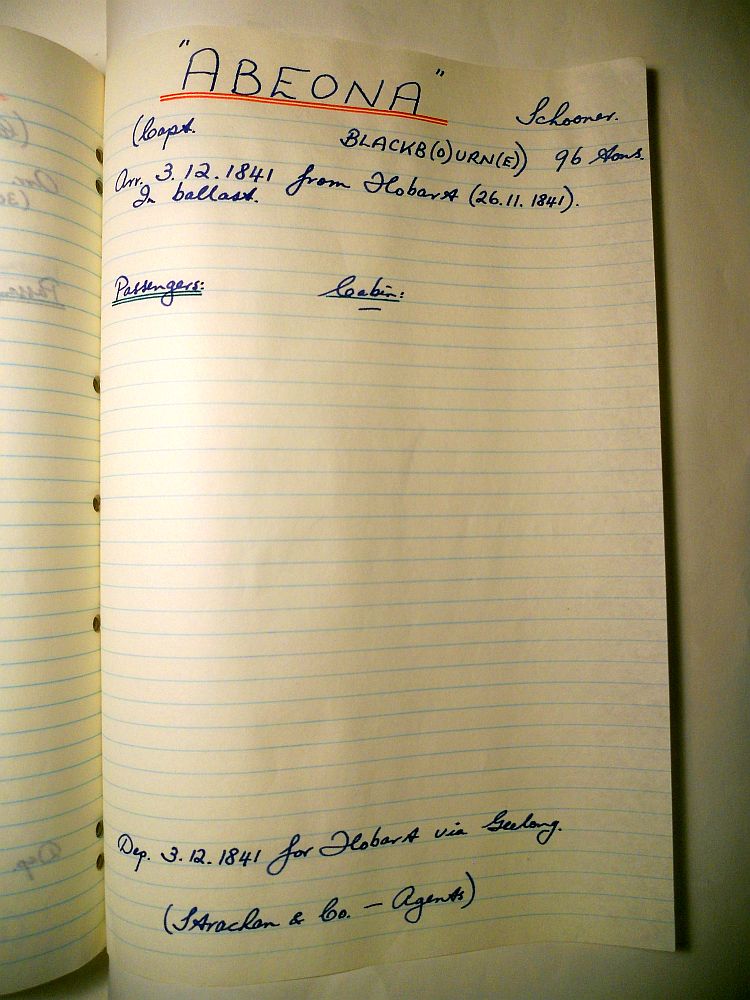 "ABEONA"
Schooner.
(Capt. BLACKB(O)URN(E)) 96 tons.
Arr. 3.12.1841 from Hobart (26.11.1841).
In ballast.
Passengers: Cabin:
—
Dep. 3.12.1841 for Hobart via Geelong.
(Strachan & Co. – Agents)